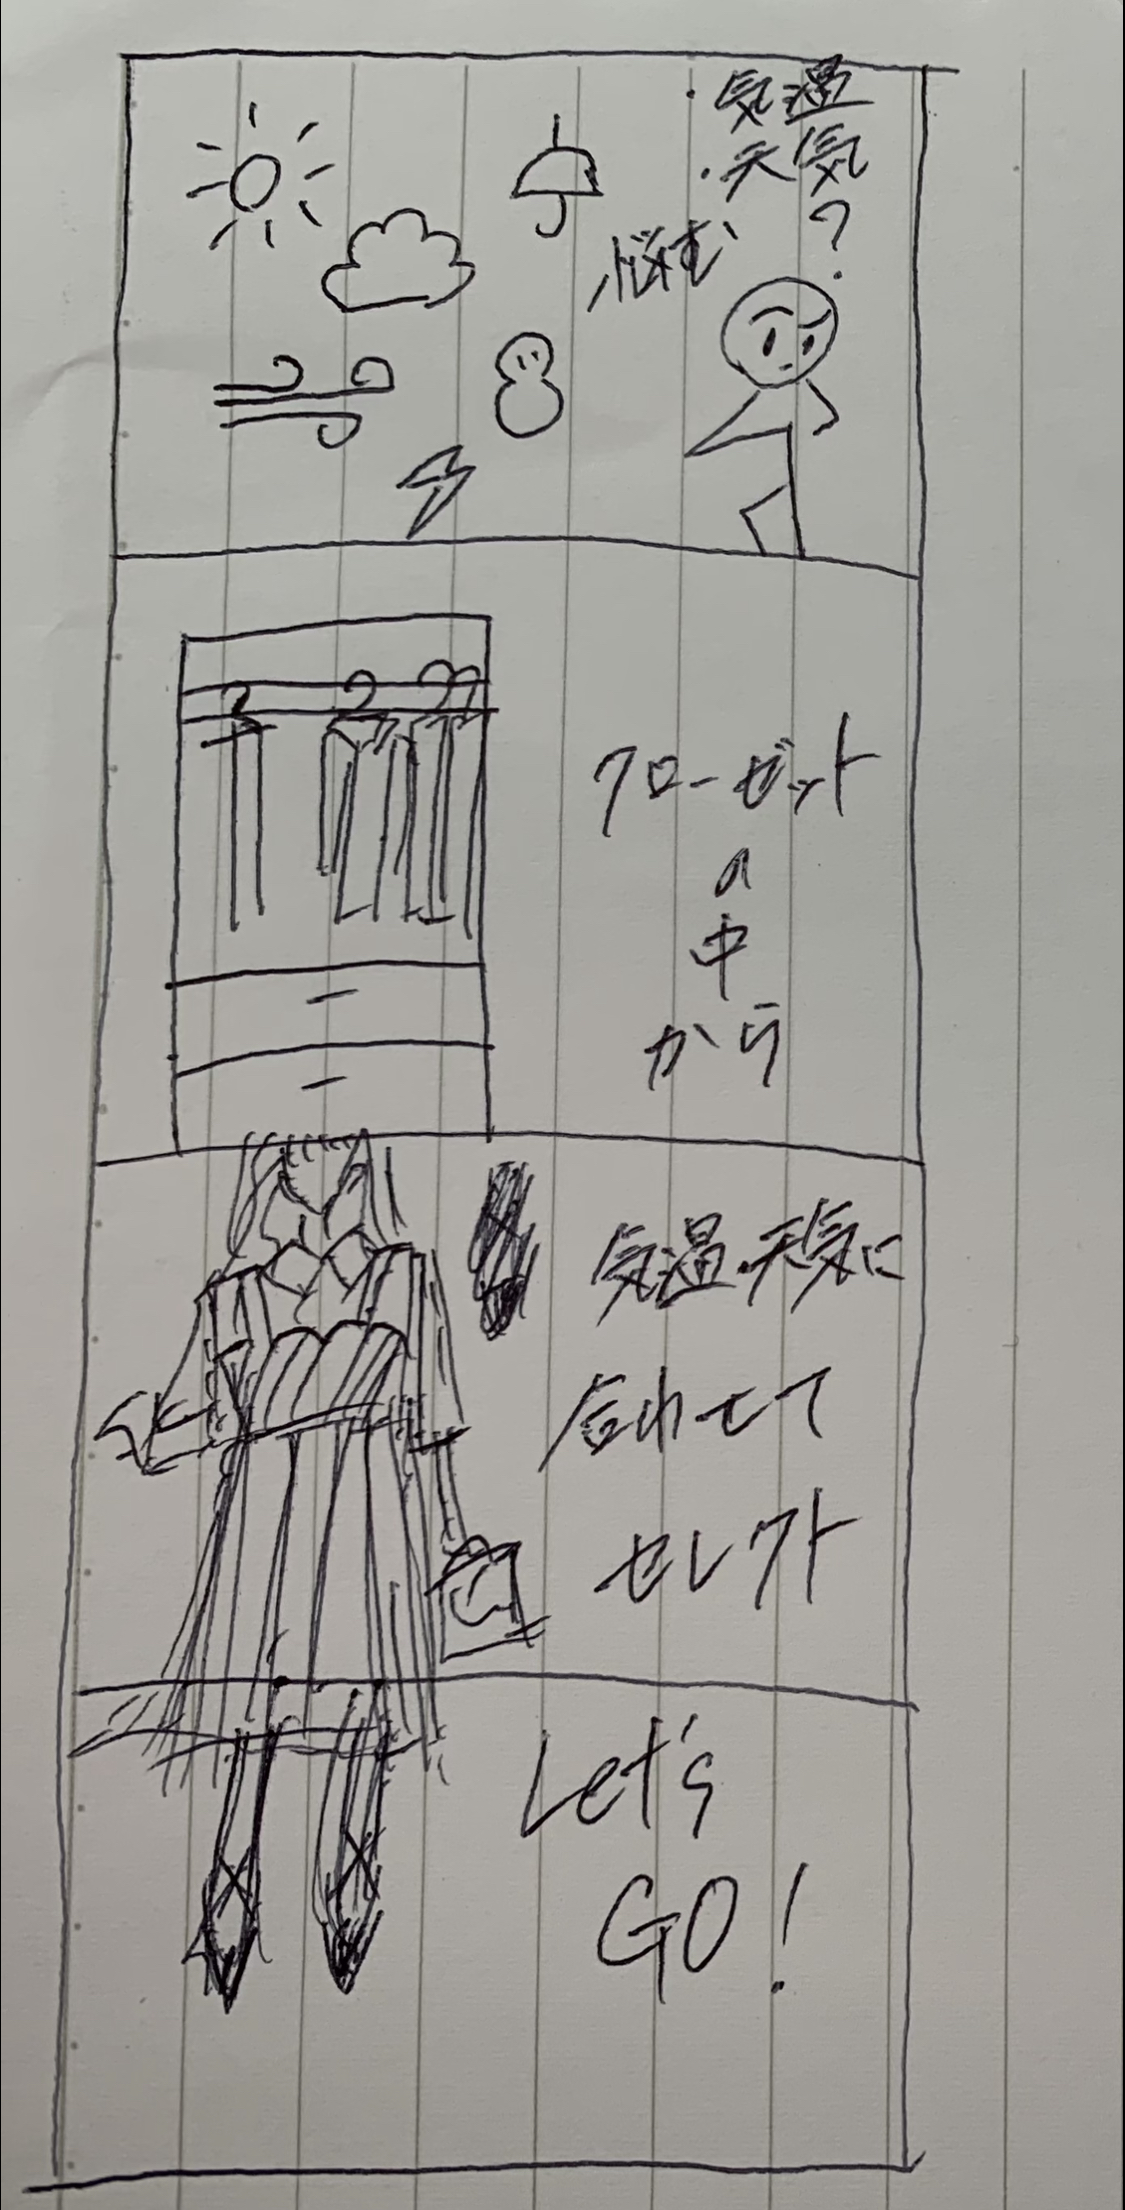 ・気温
・天気
?
悩む
クローゼット
の
中
から
気温・天気に
合わせて
セレクト
Let's
GO!